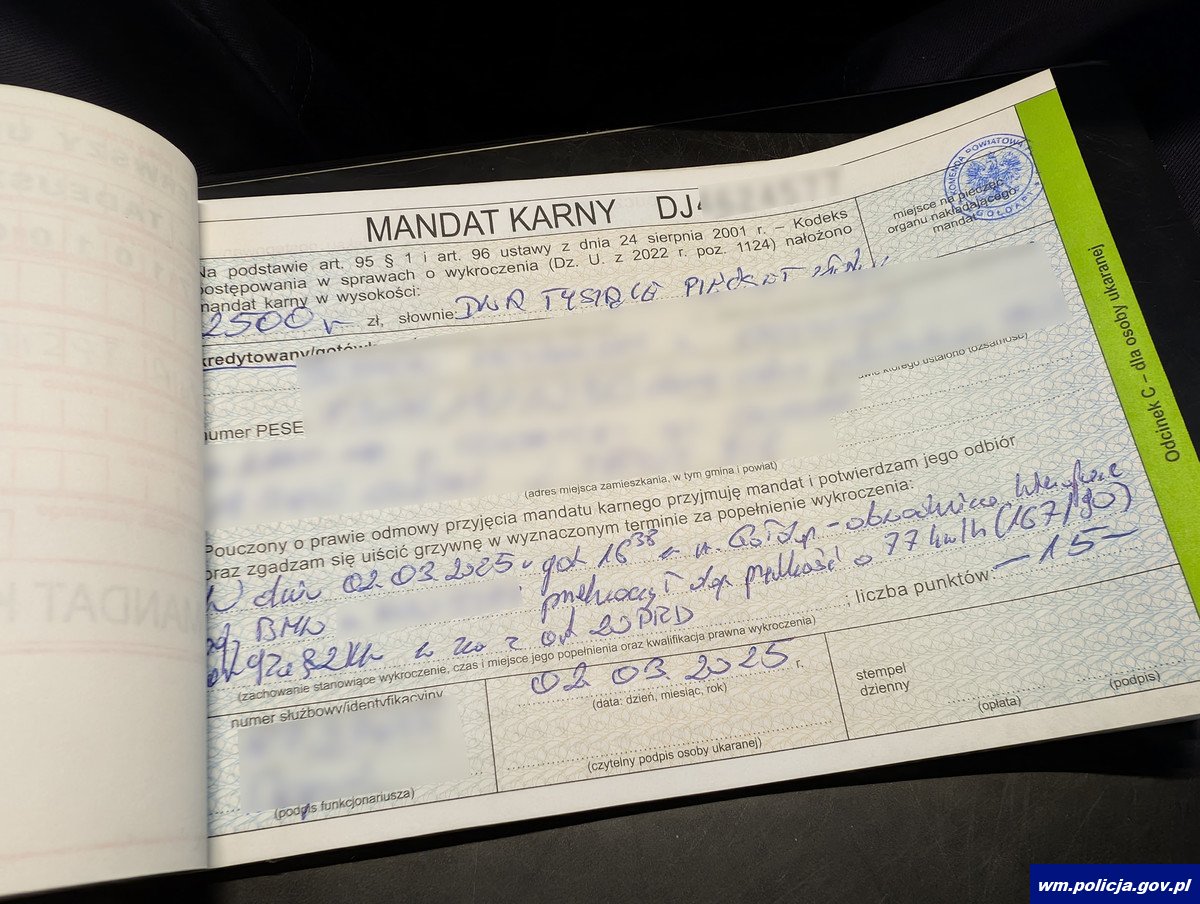 MANDAT KARNY DJ
Na podstawie art. 95 § 1 i art. 96 ustawy z dnia 24 sierpnia 2001 r. – Kodeks
postępowania w sprawach o wykroczenia (Dz. U. z 2022 r. poz. 1124) nałożono
mandat karny w wysokości:
2500 zł, słownie: DWA TYSIĄCE PIĘĆSET
miejsce na pieczęć
organu nakładającego
mandat
KOMENDA POWIATOWA
GOŁDAP
kredytowany/gotówk
numer PESE
(adres miejsca zamieszkania, w tym gmina i powiat)
Pouczony o prawie odmowy przyjęcia mandatu karnego przyjmuję mandat i potwierdzam jego odbiór
oraz zgadzam się uiścić grzywnę w wyznaczonym terminie za popełnienie wykroczenia:
W dniu 02.03.2025r. god 16 38 w m. Gołdap - obwodnica
BMW przekroczył prędkość o 77 km/h (167/90)
art 92a § 2 kw w zw z art 20 PRD ; liczba punktów: -15-
(zachowanie stanowiące wykroczenie, czas i miejsce jego popełnienia oraz kwalifikacja prawna wykroczenia)
numer służbowy/identyfikacyjny
(podpis funkcjonariusza)
02 03 2025 r.
(data: dzień, miesiąc, rok)
(czytelny podpis osoby ukaranej)
stempel
dzienny
(opłata)
(podpis)
Odcinek C – dla osoby ukaranej
wm.policja.gov.pl